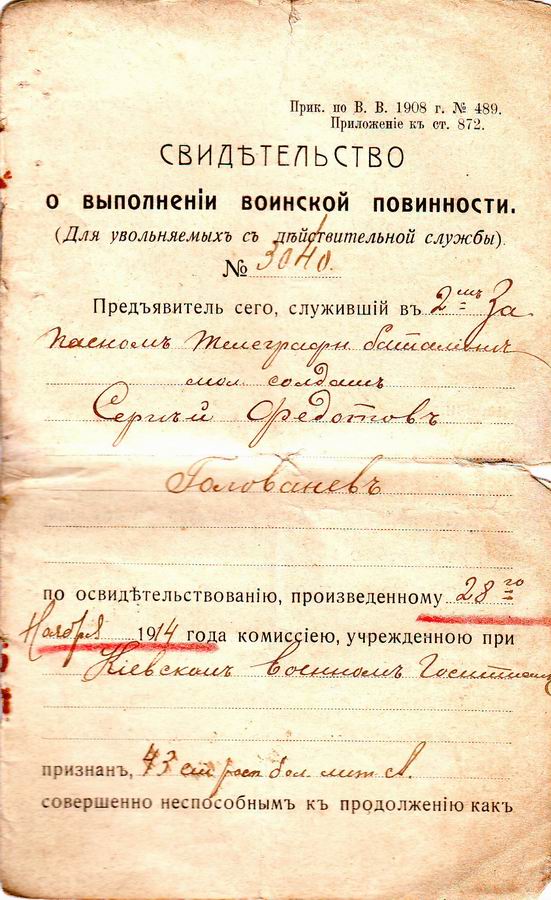 Прик. по В. В. 1908 г. № 489.
Приложеніе къ ст. 872.
СВИДѢТЕЛЬСТВО
О ВЫПОЛНЕНІИ ВОИНСКОЙ ПОВИННОСТИ.
(Для увольняемыхъ съ дѣйствительной службы).
№ 3040.
Предъявитель сего, служившій въ 2мъ За
пасномъ Телеграфн баталіонѣ
мол. солдатъ
Сергѣй Федотовъ
Голованевъ
по освидѣтельствованію, произведенному 28го
Ноября 1914 года комиссіею, учрежденною при
Кіевскомъ Военномъ
признанъ, 43 ст. расп. бол. лит А.
совершенно неспособнымъ къ продолженію какъ